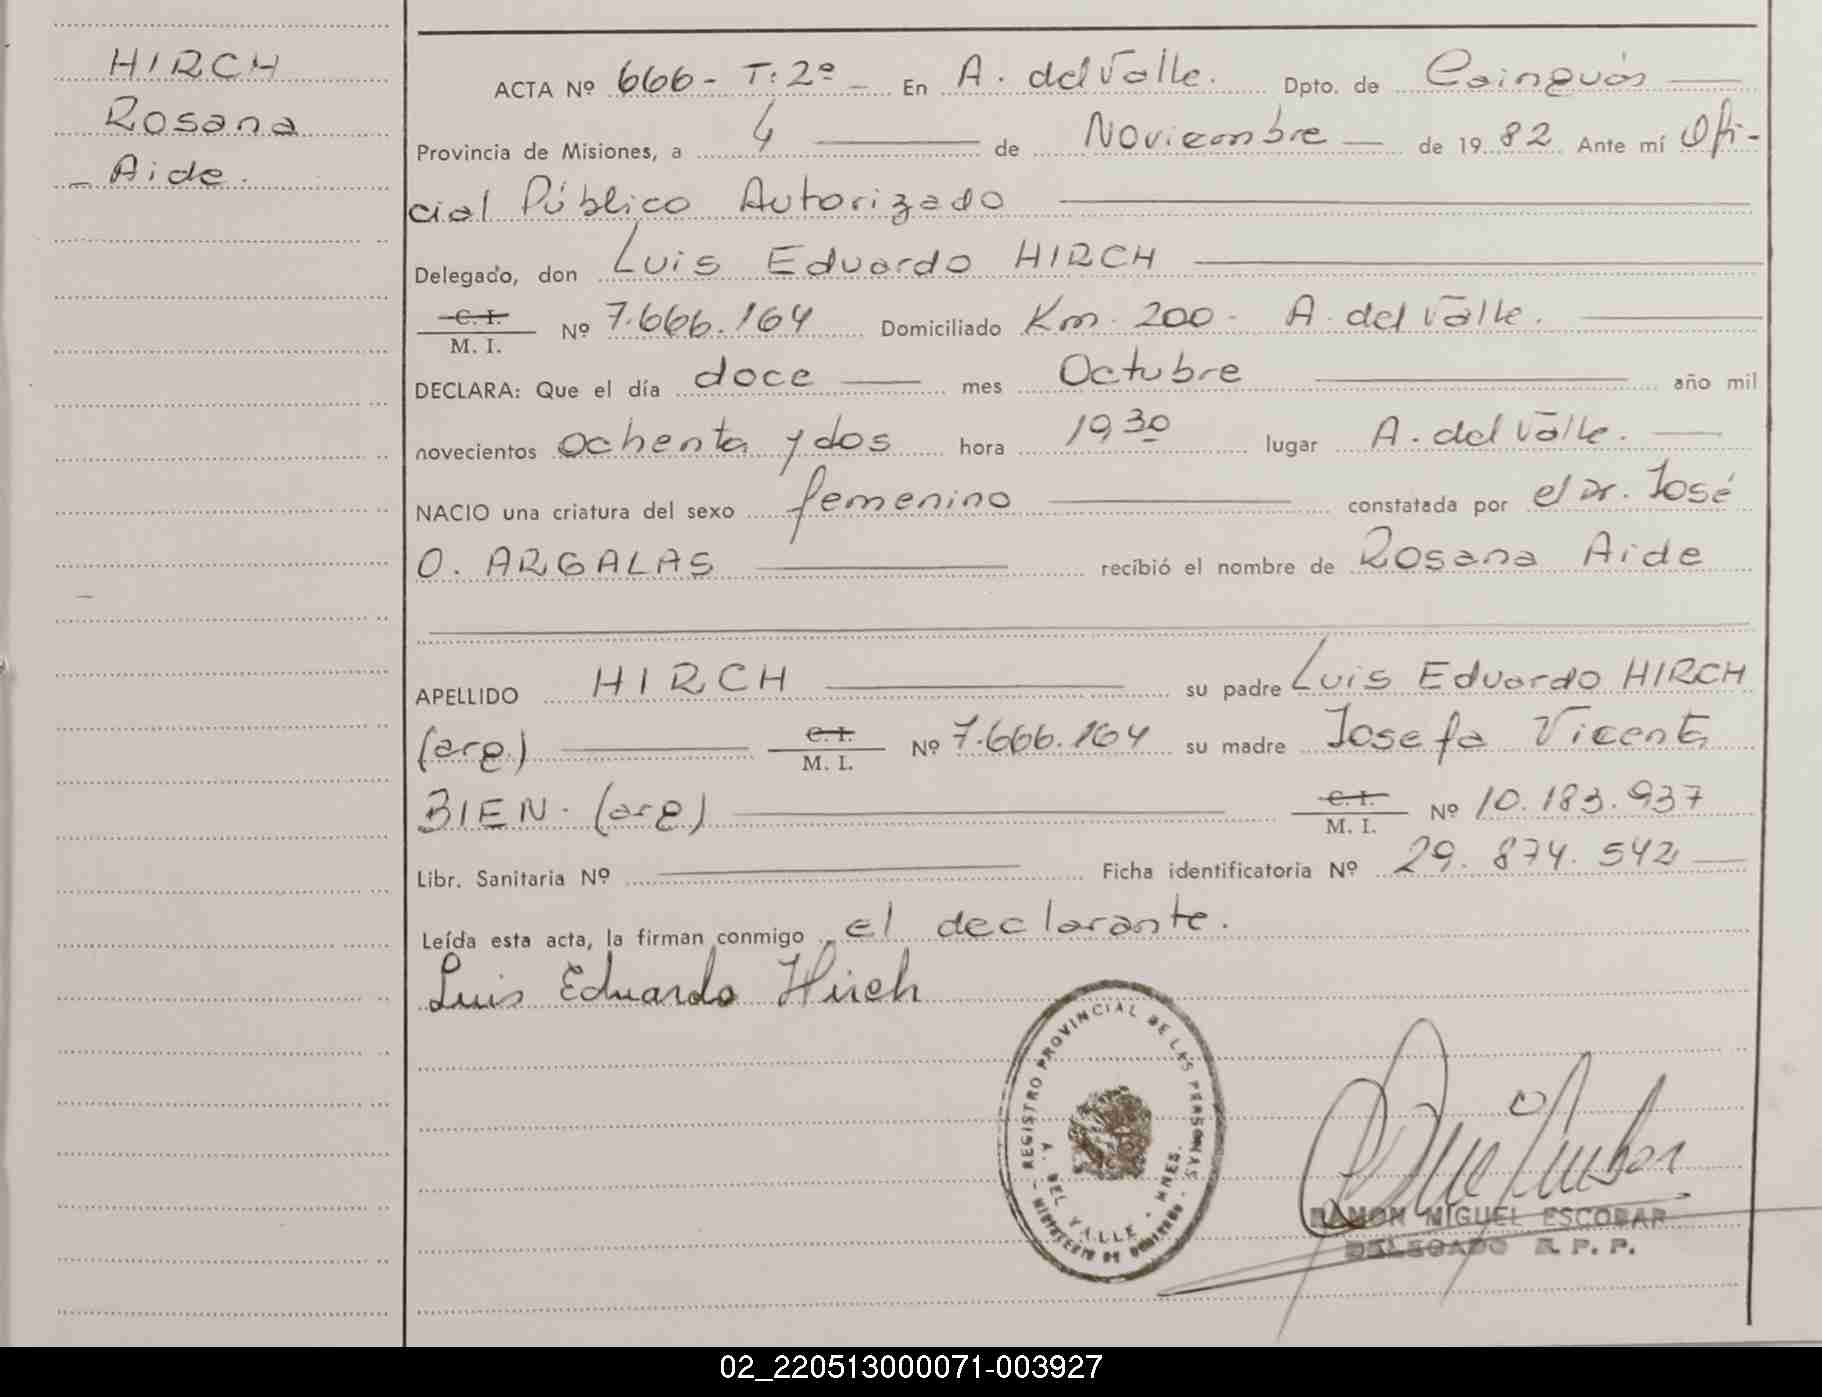 HIRCH
Rosana
Aide.
ACTA Nº 666 - T: 2º - En A. del Valle. Dpto. de Cainguás
Provincia de Misiones, a 4 de Noviembre de 19 82 Ante mí Ofi-
cial Público Autorizado
Delegado, don Luis Eduardo HIRCH
C. I.
M. I. Nº 7.666.164 Domiciliado Km. 200 - A. del Valle.
DECLARA: Que el día doce mes Octubre año mil
novecientos ochenta y dos hora 19,30 lugar A. del Valle.
NACIO una criatura del sexo femenino constatada por el Dr. José
O. ARGALAS recibió el nombre de Rosana Aide
APELLIDO HIRCH su padre Luis Eduardo HIRCH
(arg.) C. I.
M. I. Nº 7.666.164 su madre Josefa Vicenta
BIEN - (arg) C. I.
M. I. Nº 10.183.937
Libr. Sanitaria Nº Ficha identificatoria Nº 29.874.542
Leída esta acta, la firman conmigo el declarante.
Luis Eduardo Hirch
REGISTRO PROVINCIAL DE LAS PERSONAS
A. DEL VALLE - MNES.
MINISTERIO DE GOBIERNO
RAMON MIGUEL ESCOBAR
DELEGADO R. P. P.
02_220513000071-003927